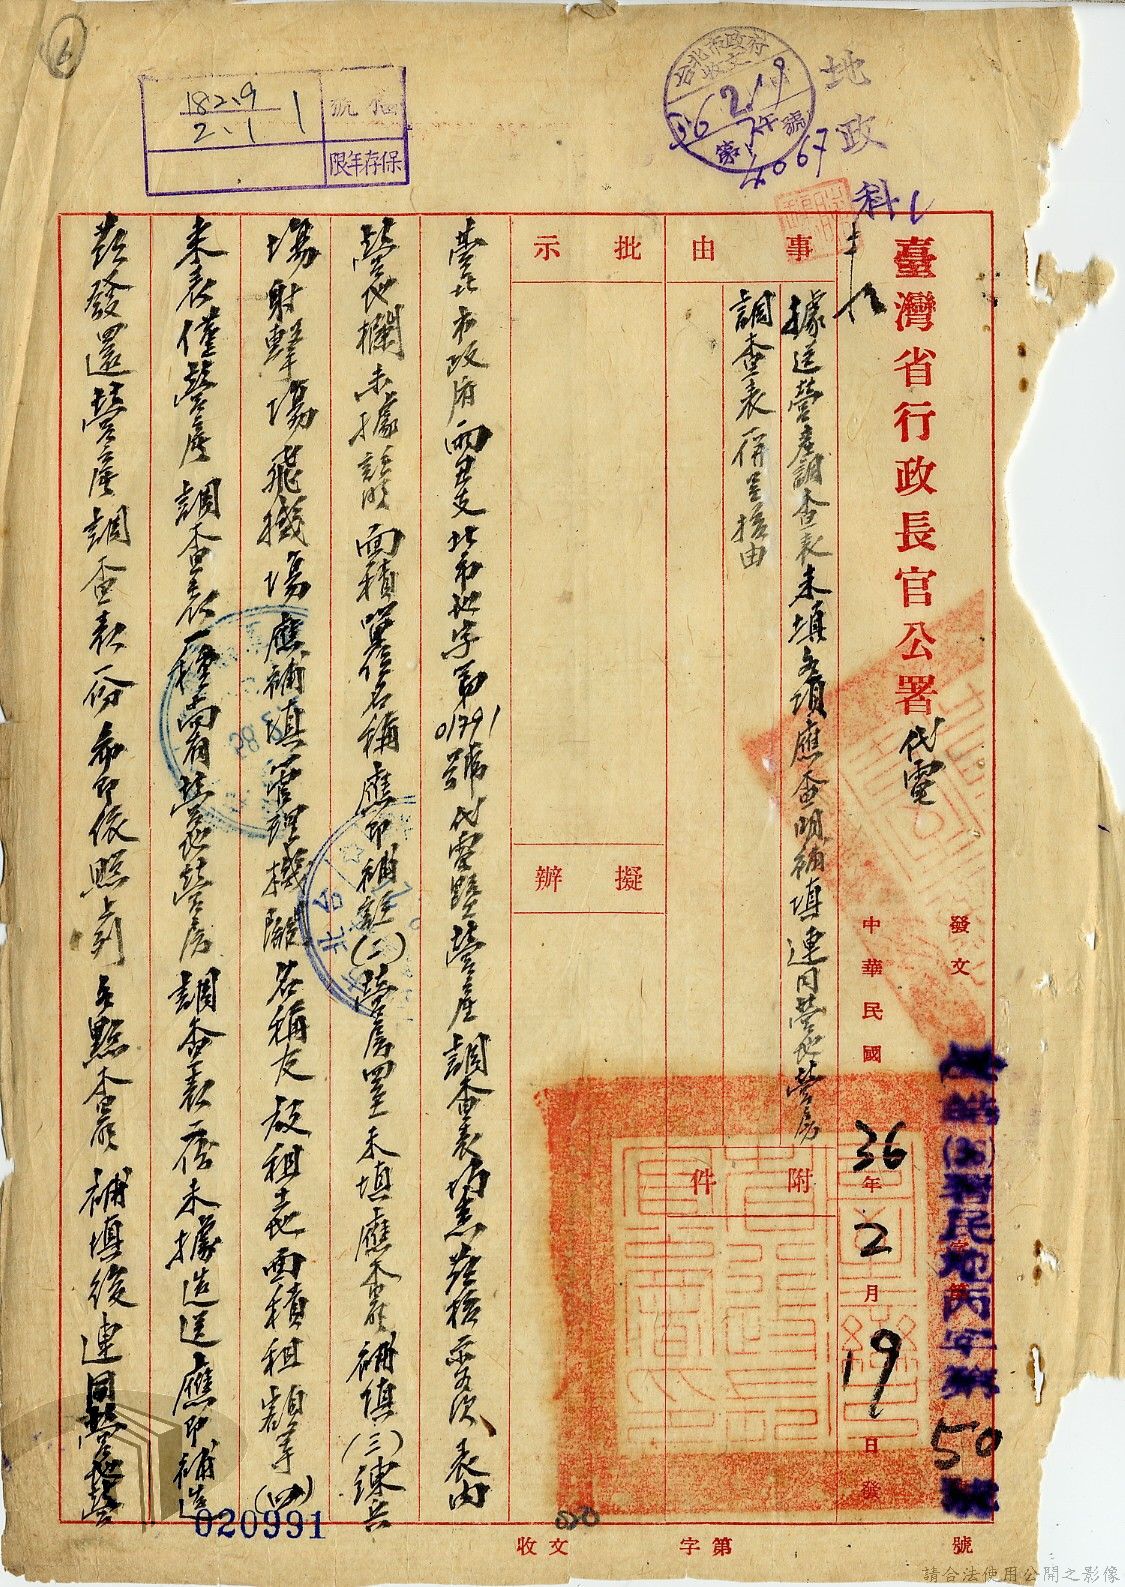 地政科
台北市政府
收文
36 2 19
午
第 號
4067
6
182.9
2.1 1
號
保存年限
臺灣省行政長官公署代電
發文
中華民國36年2月19日發
民地丙字第50號
事由
據送營產調查表未填各項應查明補填連同營地營房
調查表一併呈核由
附件
批示
擬辦
臺北市政府丙丑支北市地字第01791號代電暨營產調查表均悉茲核示各次表內
營地欄未據註明面積單位名稱應即補註(二)營房四至未填應查明補填(三)練兵
場射擊場飛機場應補填管理機關名稱及放租土地面積租額等(四)
來表僅營產調查表一種尚有營地營房調查表一份未據造送應即補造
茲發還營產調查表一份希即依照上列各點查明補填後連同營地營
020991
020
收文 字第 號
請合法使用公開之影像